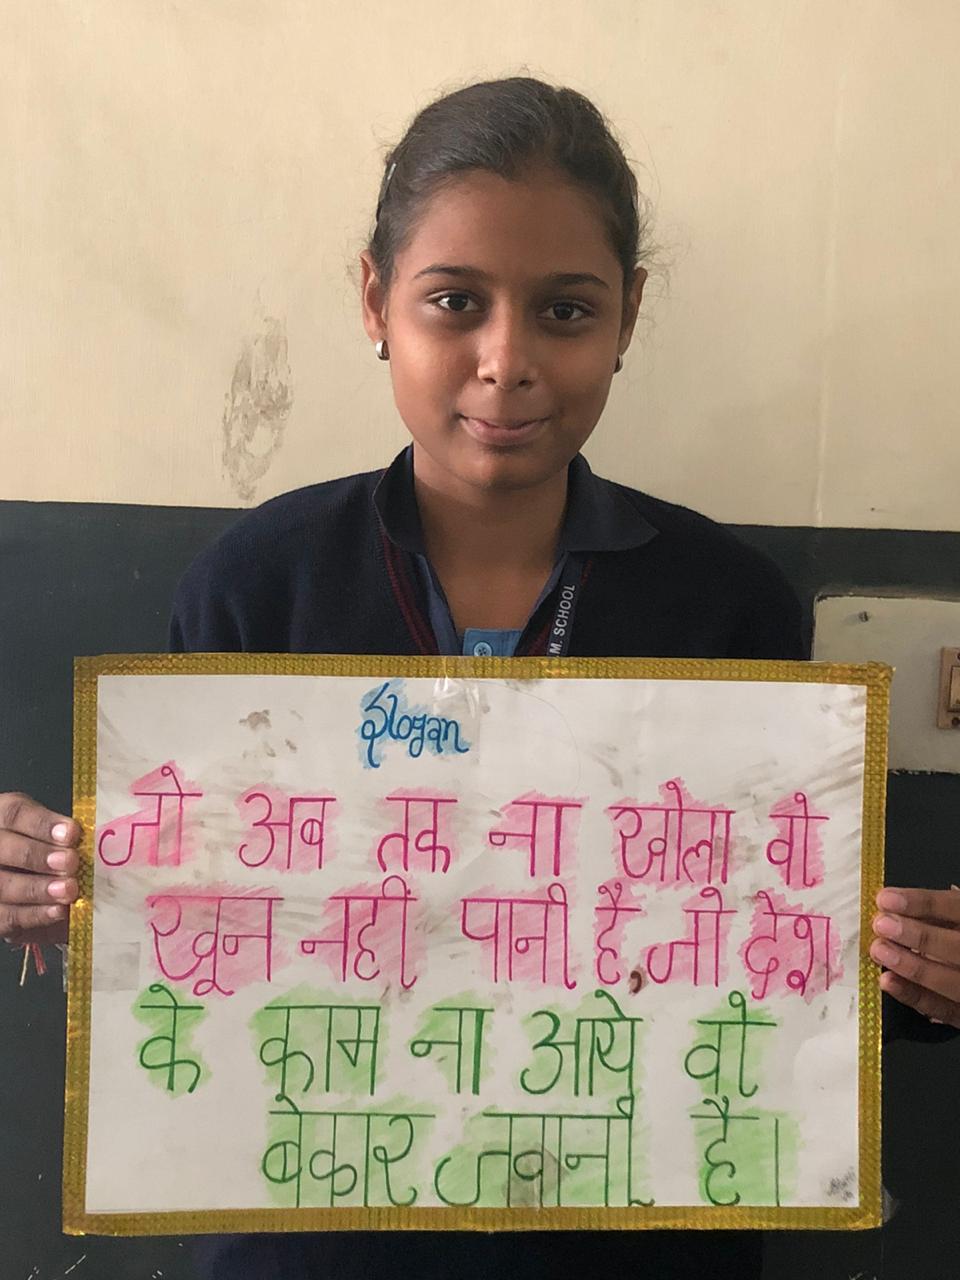 M. SCHOOL
Slogan
जो अब तक ना खोला वो
खून नहीं पानी है, जो देश
के काम ना आये वो
बेकार जवानी है।